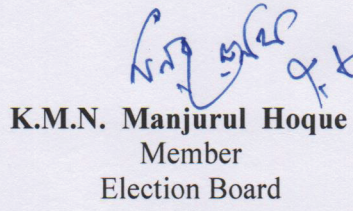 K.M.N. Manjurul Hoque
Member
Election Board